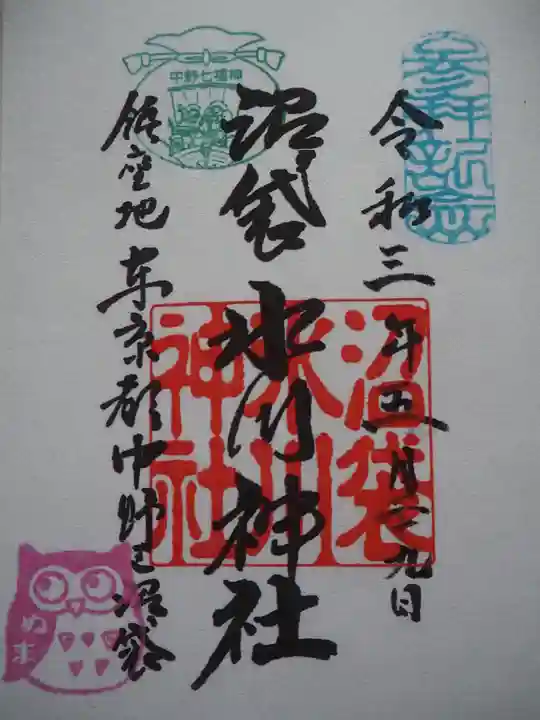 参拝記念
令和三年五月二九日
沼袋氷川神社
沼袋
氷川
神社
中野七福神
鎮座地 東京都中野区沼袋
ぬま